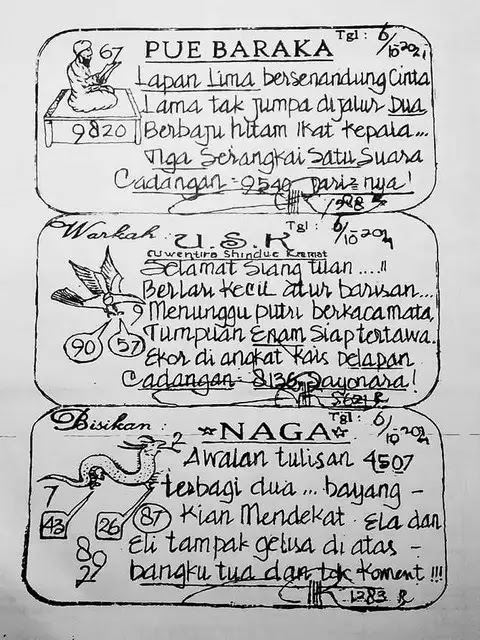 Tgl: 6/10-2021
67
PUE BARAKA
Lapan Lima bersenandung Cinta
Lama tak jumpa dijalur Dua
9820
Berbaju hitam ikat kepala...
Tiga Serangkai Satu Suara
Cadangan = 9549 Paris nya!
Warkah:
Tgl: 6/10-2021
U.S.K
Selamat Siang tuan ....!!
Berlari kecil atur barisan...
9
Menunggu putri berkacamata,
90
57
Tumpuan Enam Siap tertawa.
Ekor di angkat Kais Delapan
Cadangan = 8136 Sayonara!
Bisikan:
Tgl: 6/10-2021
☆NAGA☆
2
Awalan tulisan 4507
7
terbagi dua... bayang -
43
26
87
Kian Mendekat. Ela dan
89
Eli tampak gelisa di atas -
2
bangku tua dan tak koment!!!
1283 R